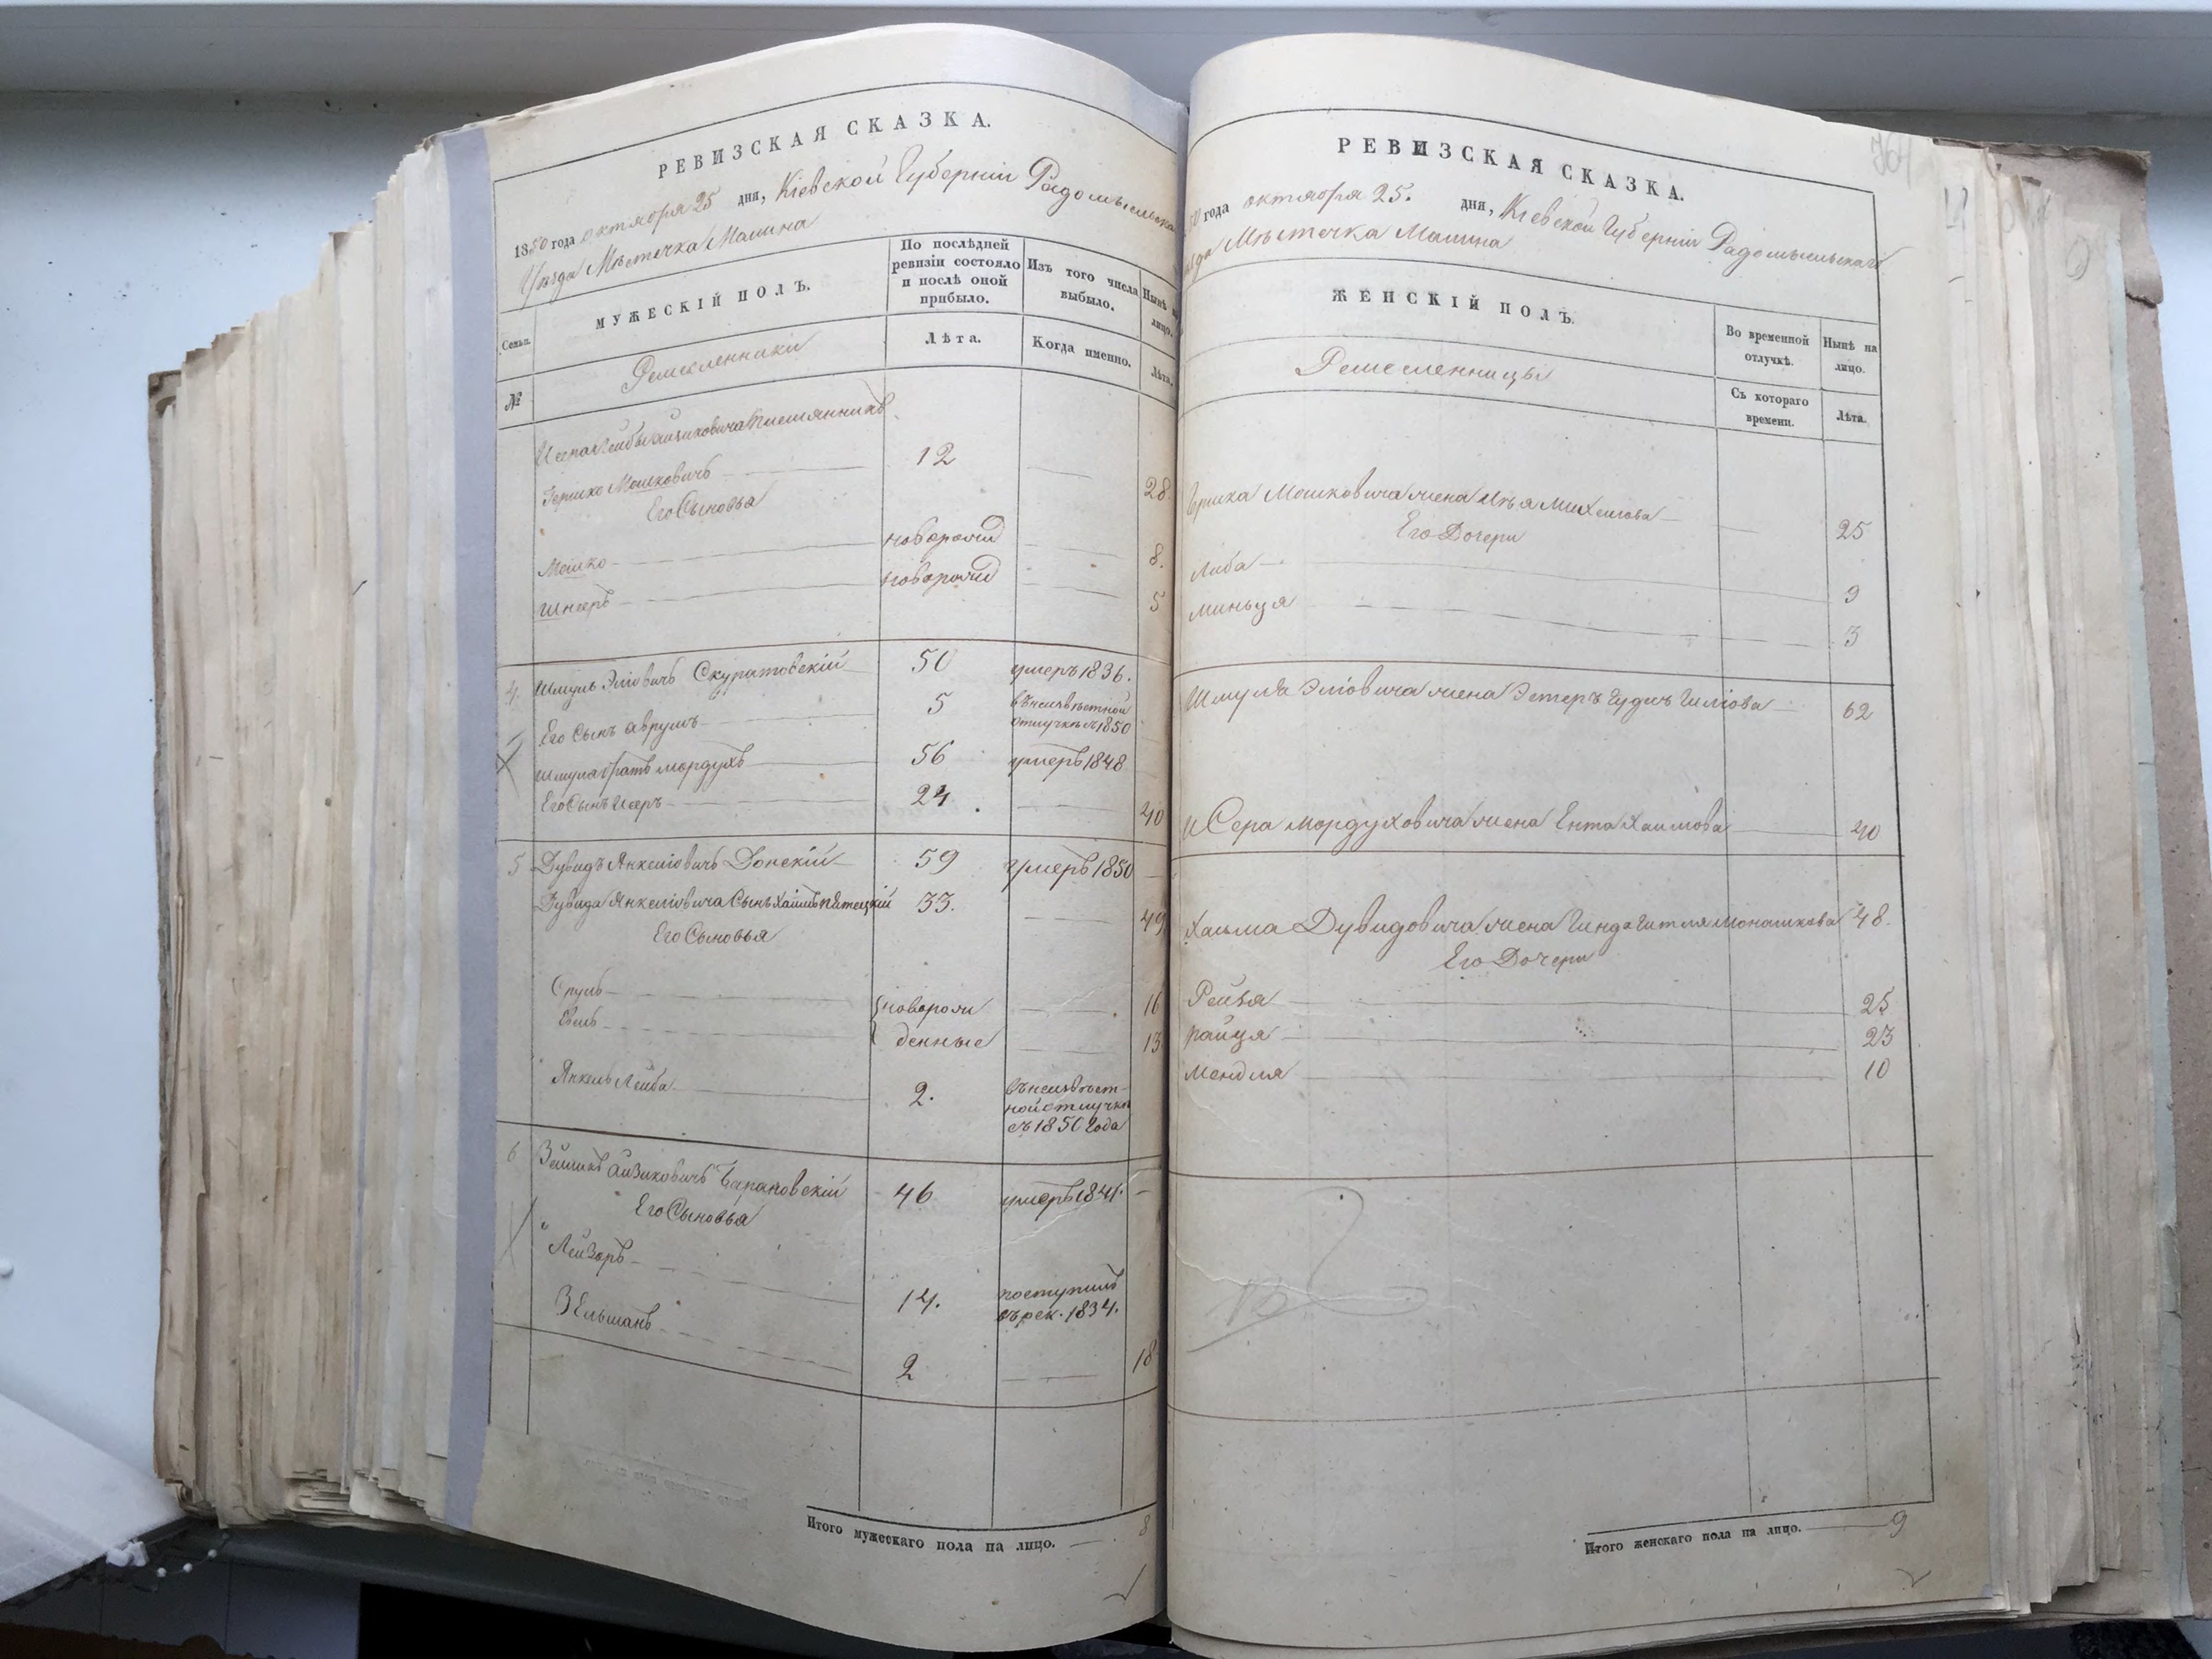 РЕВИЗСКАЯ СКАЗКА.
1850 года октября 25 дня, Кіевской Губерніи Радомысльска
Уѣзда Мѣстечка Малина
Семьи.
МУЖЕСКІЙ ПОЛЪ.
По послѣдней ревизіи состояло и послѣ оной прибыло.
Изъ того числа выбыло.
Нынѣ на лицо.
№
Ремесленники
Лѣта.
Когда именно.
Лѣта.
Лейбы Айзиковича племянникъ
Гершко Мошковичъ 12 28
Его Сыновья
Мошко новорожд 8.
Шнеръ новорожд 5
4. Шмуль Эліовичъ Скуратовскій 50 умеръ 1836.
Его Сынъ Аврумъ 5 въ неизвѣстной отлучкѣ съ 1850
Шмуля братъ Мордухъ 56 умеръ 1848
Его Сынъ Исеръ 24 40
5 Дувидъ Янкеліовичъ Донскій 59 умеръ 1850
Дувида Янкеліовича Сынъ Хаимъ 33. 49
Его Сыновья
Сруль новорож 16
Евель денные 13
Янкель Лейба 2. въ неизвѣст-
ной отлучкѣ
съ 1850 года
6 Зельманъ Айзиковичъ Барановскій 46 умеръ 1841.
Его Сыновья
Лейзоръ 14. поступилъ
въ рек. 1834.
Зельманъ 2 18
Итого мужескаго пола на лицо. 8
РЕВИЗСКАЯ СКАЗКА.
50 года октября 25. дня, Кіевской Губерніи Радомысльскаго
ѣзда Мѣстечка Малина
ЖЕНСКІЙ ПОЛЪ.
Во временной отлучкѣ.
Нынѣ на лицо.
Ремесленницы
Съ котораго времени.
Лѣта.
Гершка Мошковича жена Михелова 25
Его Дочери
Либа 9
Миньця 3
Шмуля Эліовича жена Эстеръ Гудль 62
Исера Мордуховича жена Ента Хаимова 40
Хаима Дувидовича жена Гинда Гитля Монашкова 48.
Его Дочери
Рейзя 25
Райця 23
Мендля 10
Итого женскаго пола на лицо. 9